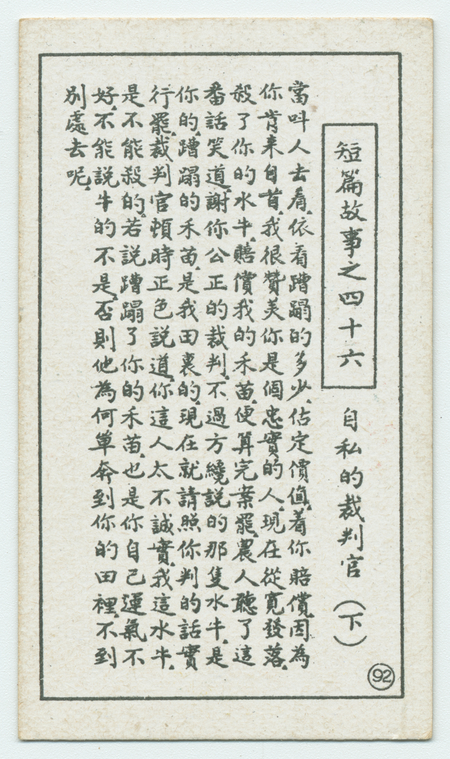 短篇故事之四十六
自私的裁判官（下）
當叫人去看、依着蹧蹋的多少、估定價值、着你賠償、因為
你肯来自首、我很赞美你是個忠實的人、現在從寬發落、
殺了你的水牛、賠償我的禾苗、便算完案罷、農人聽了這
番話笑道、謝你公正的裁判、不過方纔說的那隻水牛、是
你的、蹧蹋的禾苗、是我田裏的、現在就請照你判的話實
行罷、裁判官頓時正色說道、你這人太不誠實、我這水牛、
是不能殺的、若說蹧蹋了你的禾苗、也是你自己運氣不
好、不能說牛的不是、否則他為何單奔到你的田裡、不到
別處去呢、
92